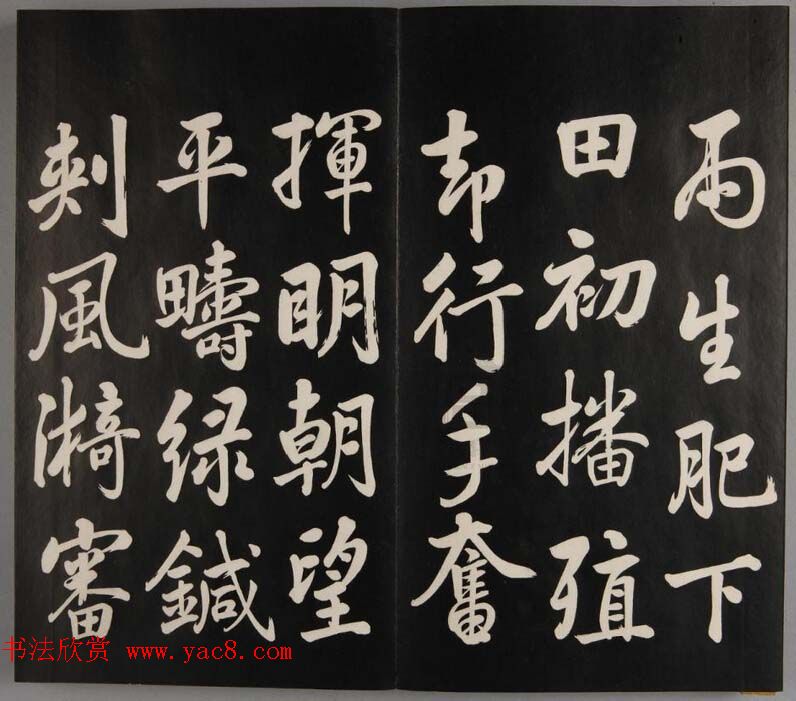 雨生肥下
田初播殖
却行手奮
揮明朝望
平疇緑鍼
刺風漪審
书法欣赏 www.yac8.com